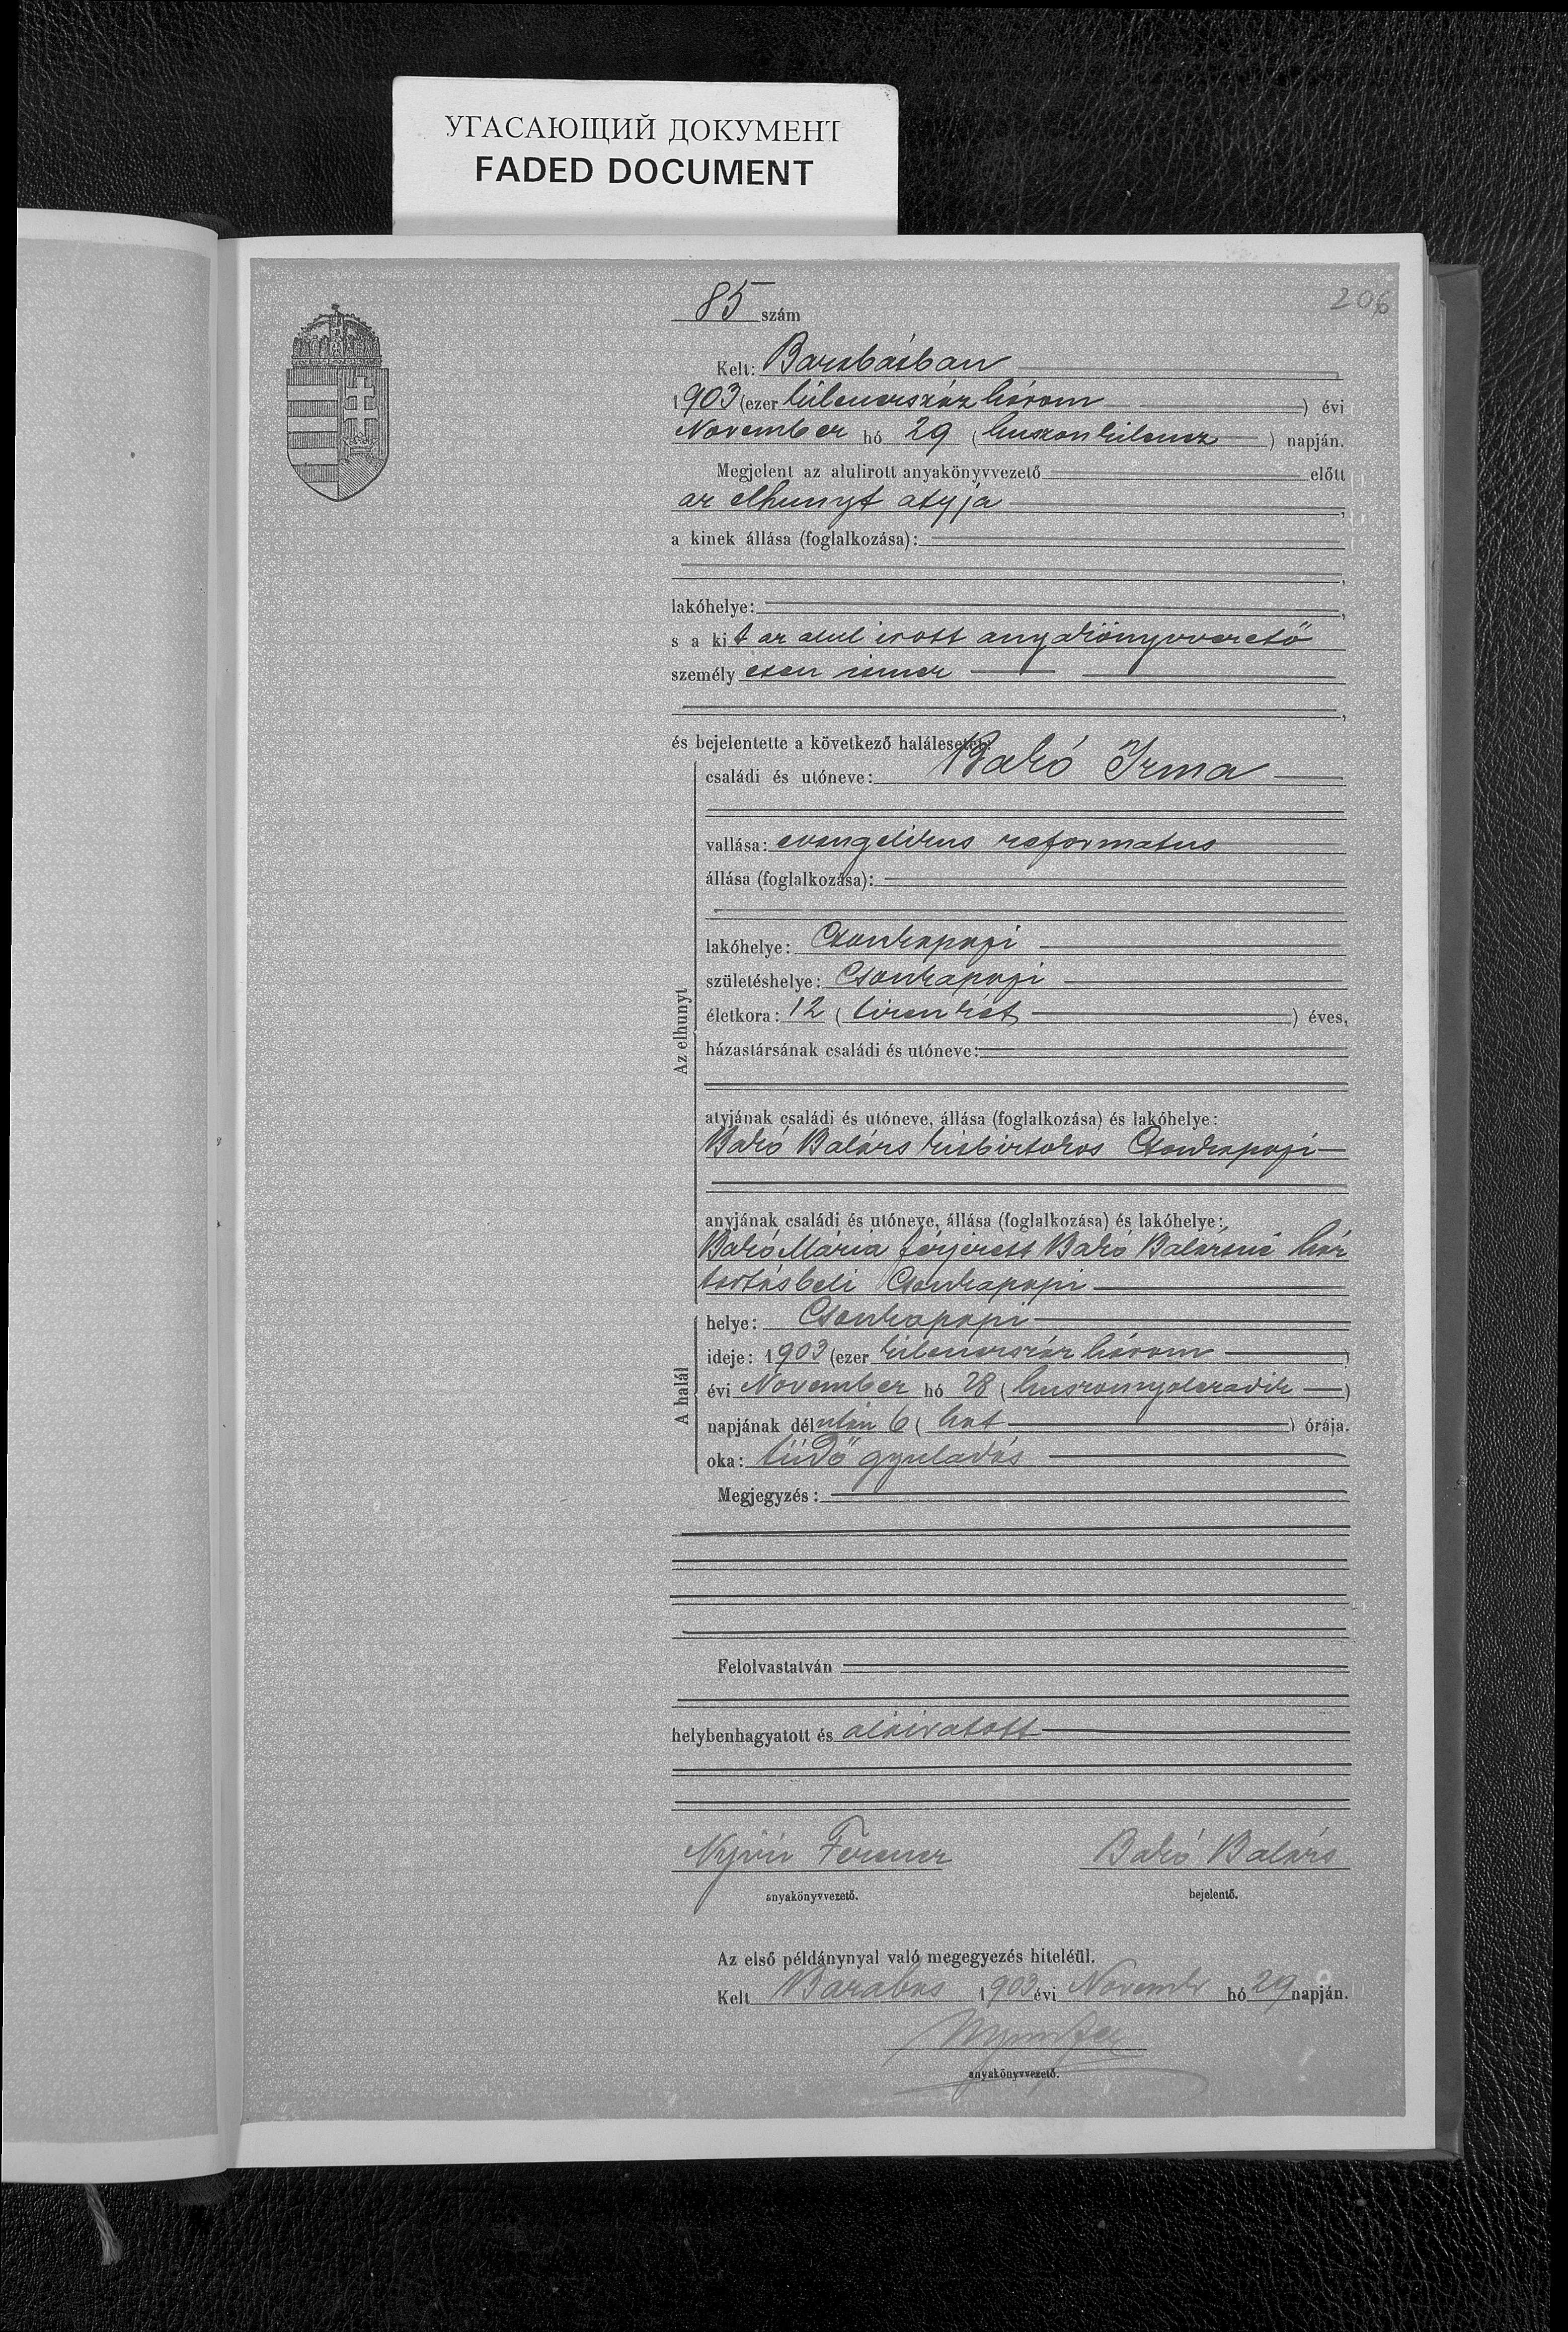 УГАСАЮЩИЙ ДОКУМЕНТ
FADED DOCUMENT
206
85 szám
Kelt: Barabásban
1903 (ezer kilenczszáz három) évi
November hó 29 (huszonkilencz) napján.
Megjelent az alulirott anyakönyvvezető előtt
az elhunyt atyja,
a kinek állása (foglalkozása):
,
lakóhelye:,
s a kit az alul irott anyakönyvvezető
személyesen ismer
,
és bejelentette a következő halálesetet:
Az elhunyt
családi és utóneve: Bakó Irma
vallása: evangelikus reformatus
állása (foglalkozása):
lakóhelye: Csonkapapi
születéshelye: Csonkapapi
életkora: 12 (tizenkét) éves,
házastársának családi és utóneve:
atyjának családi és utóneve, állása (foglalkozása) és lakóhelye:
Bakó Balázs kisbirtokos Csonkapapi
anyjának családi és utóneve, állása (foglalkozása) és lakóhelye:
Bakó Mária férjezett Bakó Balázsné ház
tartásbeli Csonkapapi
A halál
helye: Csonkapapi
ideje: 1903 (ezer kilenczszáz három)
évi November hó 28 (huszonnyolczadik)
napjának délután 6 (hat) órája.
oka: tüdő gyuladás
Megjegyzés:
Felolvastatván
helybenhagyatott és aláiratott
Ferencz Bakó Balázs
anyakönyvvezető. bejelentő.
Az első példánynyal való megegyezés hiteléül.
Kelt Barabás 1903 évi Novemb hó 29 napján.
anyakönyvvezető.